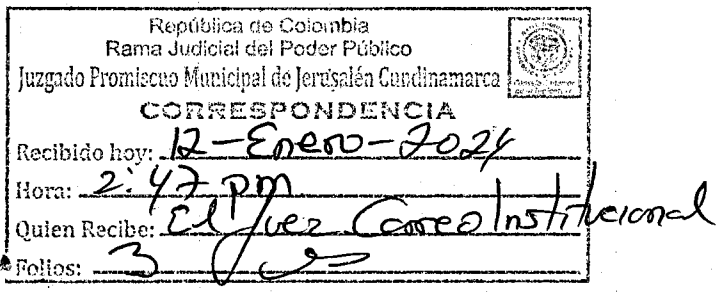 República de Colombia
Rama Judicial del Poder Público
Juzgado Promiscuo Municipal de Jerusalén Cundinamarca
CORRESPONDENCIA
Recibido hoy: 12-Enero-2024
Hora: 2:47 pm
Quien Recibe: El Juez Correo Institucional
Folios: 3